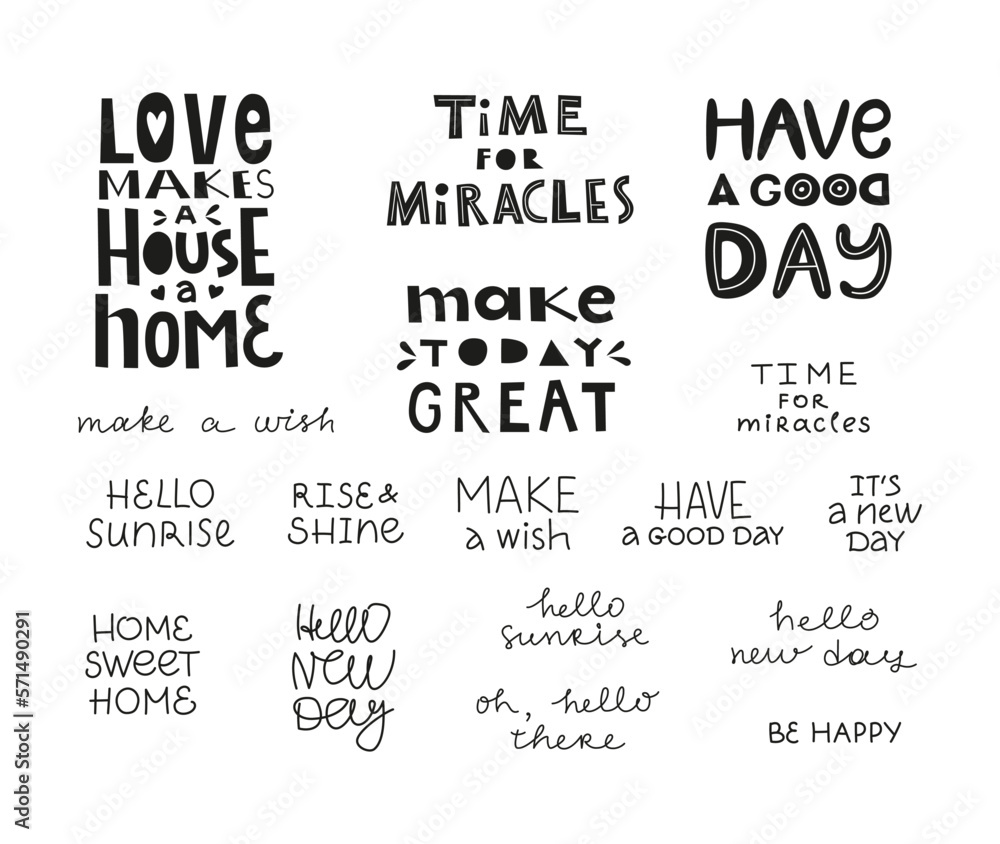 LOVE
MAKES
A
HOUSE
a
hOME
TiME
FOR
MiRACLES
HAVE
A GOOD
DAY
make
TODAY
GREAT
TIME
FOR
miracles
make a wish
HELLO
SUNRISE
RISE &
SHINE
MAKE
a wish
HAVE
a GOOD DAY
IT'S
a new
DAY
HOME
SWEET
HOME
Hello
NEW
Day
hello
sunrise
hello
new day
oh, hello
there
BE HAPPY
Adobe Stock | #571490291
Adobe Stock